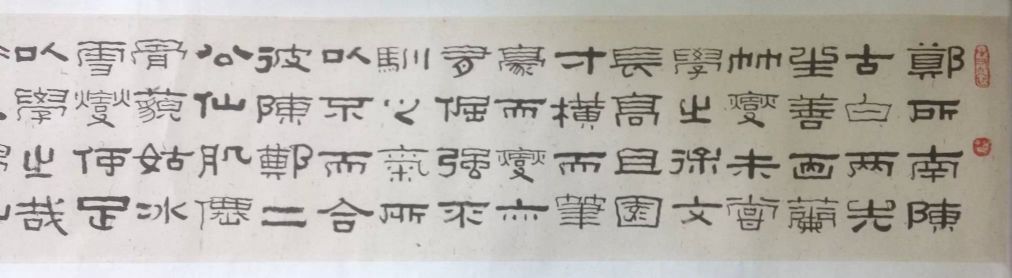 鄭所南陳
古白兩先
生善画蘭
竹燮未嘗
學之徐文
長高且園
才橫而筆
豪而燮亦
有倔强不
馴之氣所
以不而合
彼陳鄭二
公仙肌僊
骨藐姑冰
雪燮何足
以學之哉